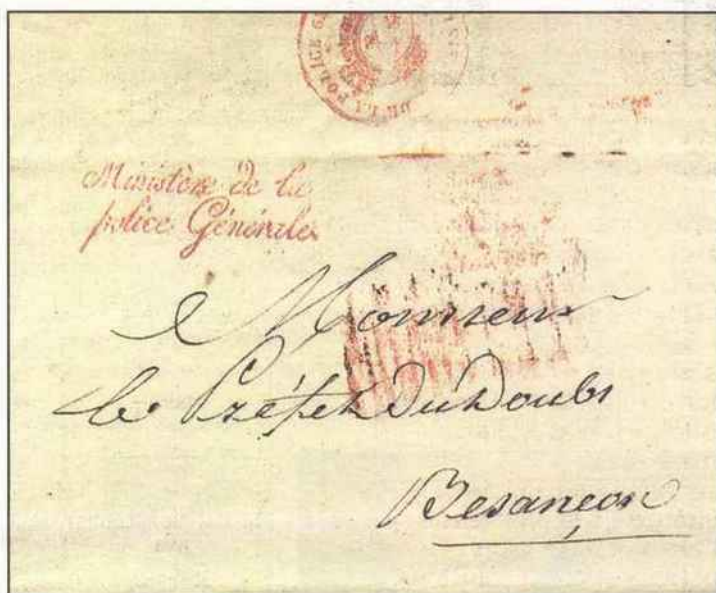 DE LA POLICE
Ministère de la
police Générale
Monsieur
le Préfet Du Doubs
Besançon